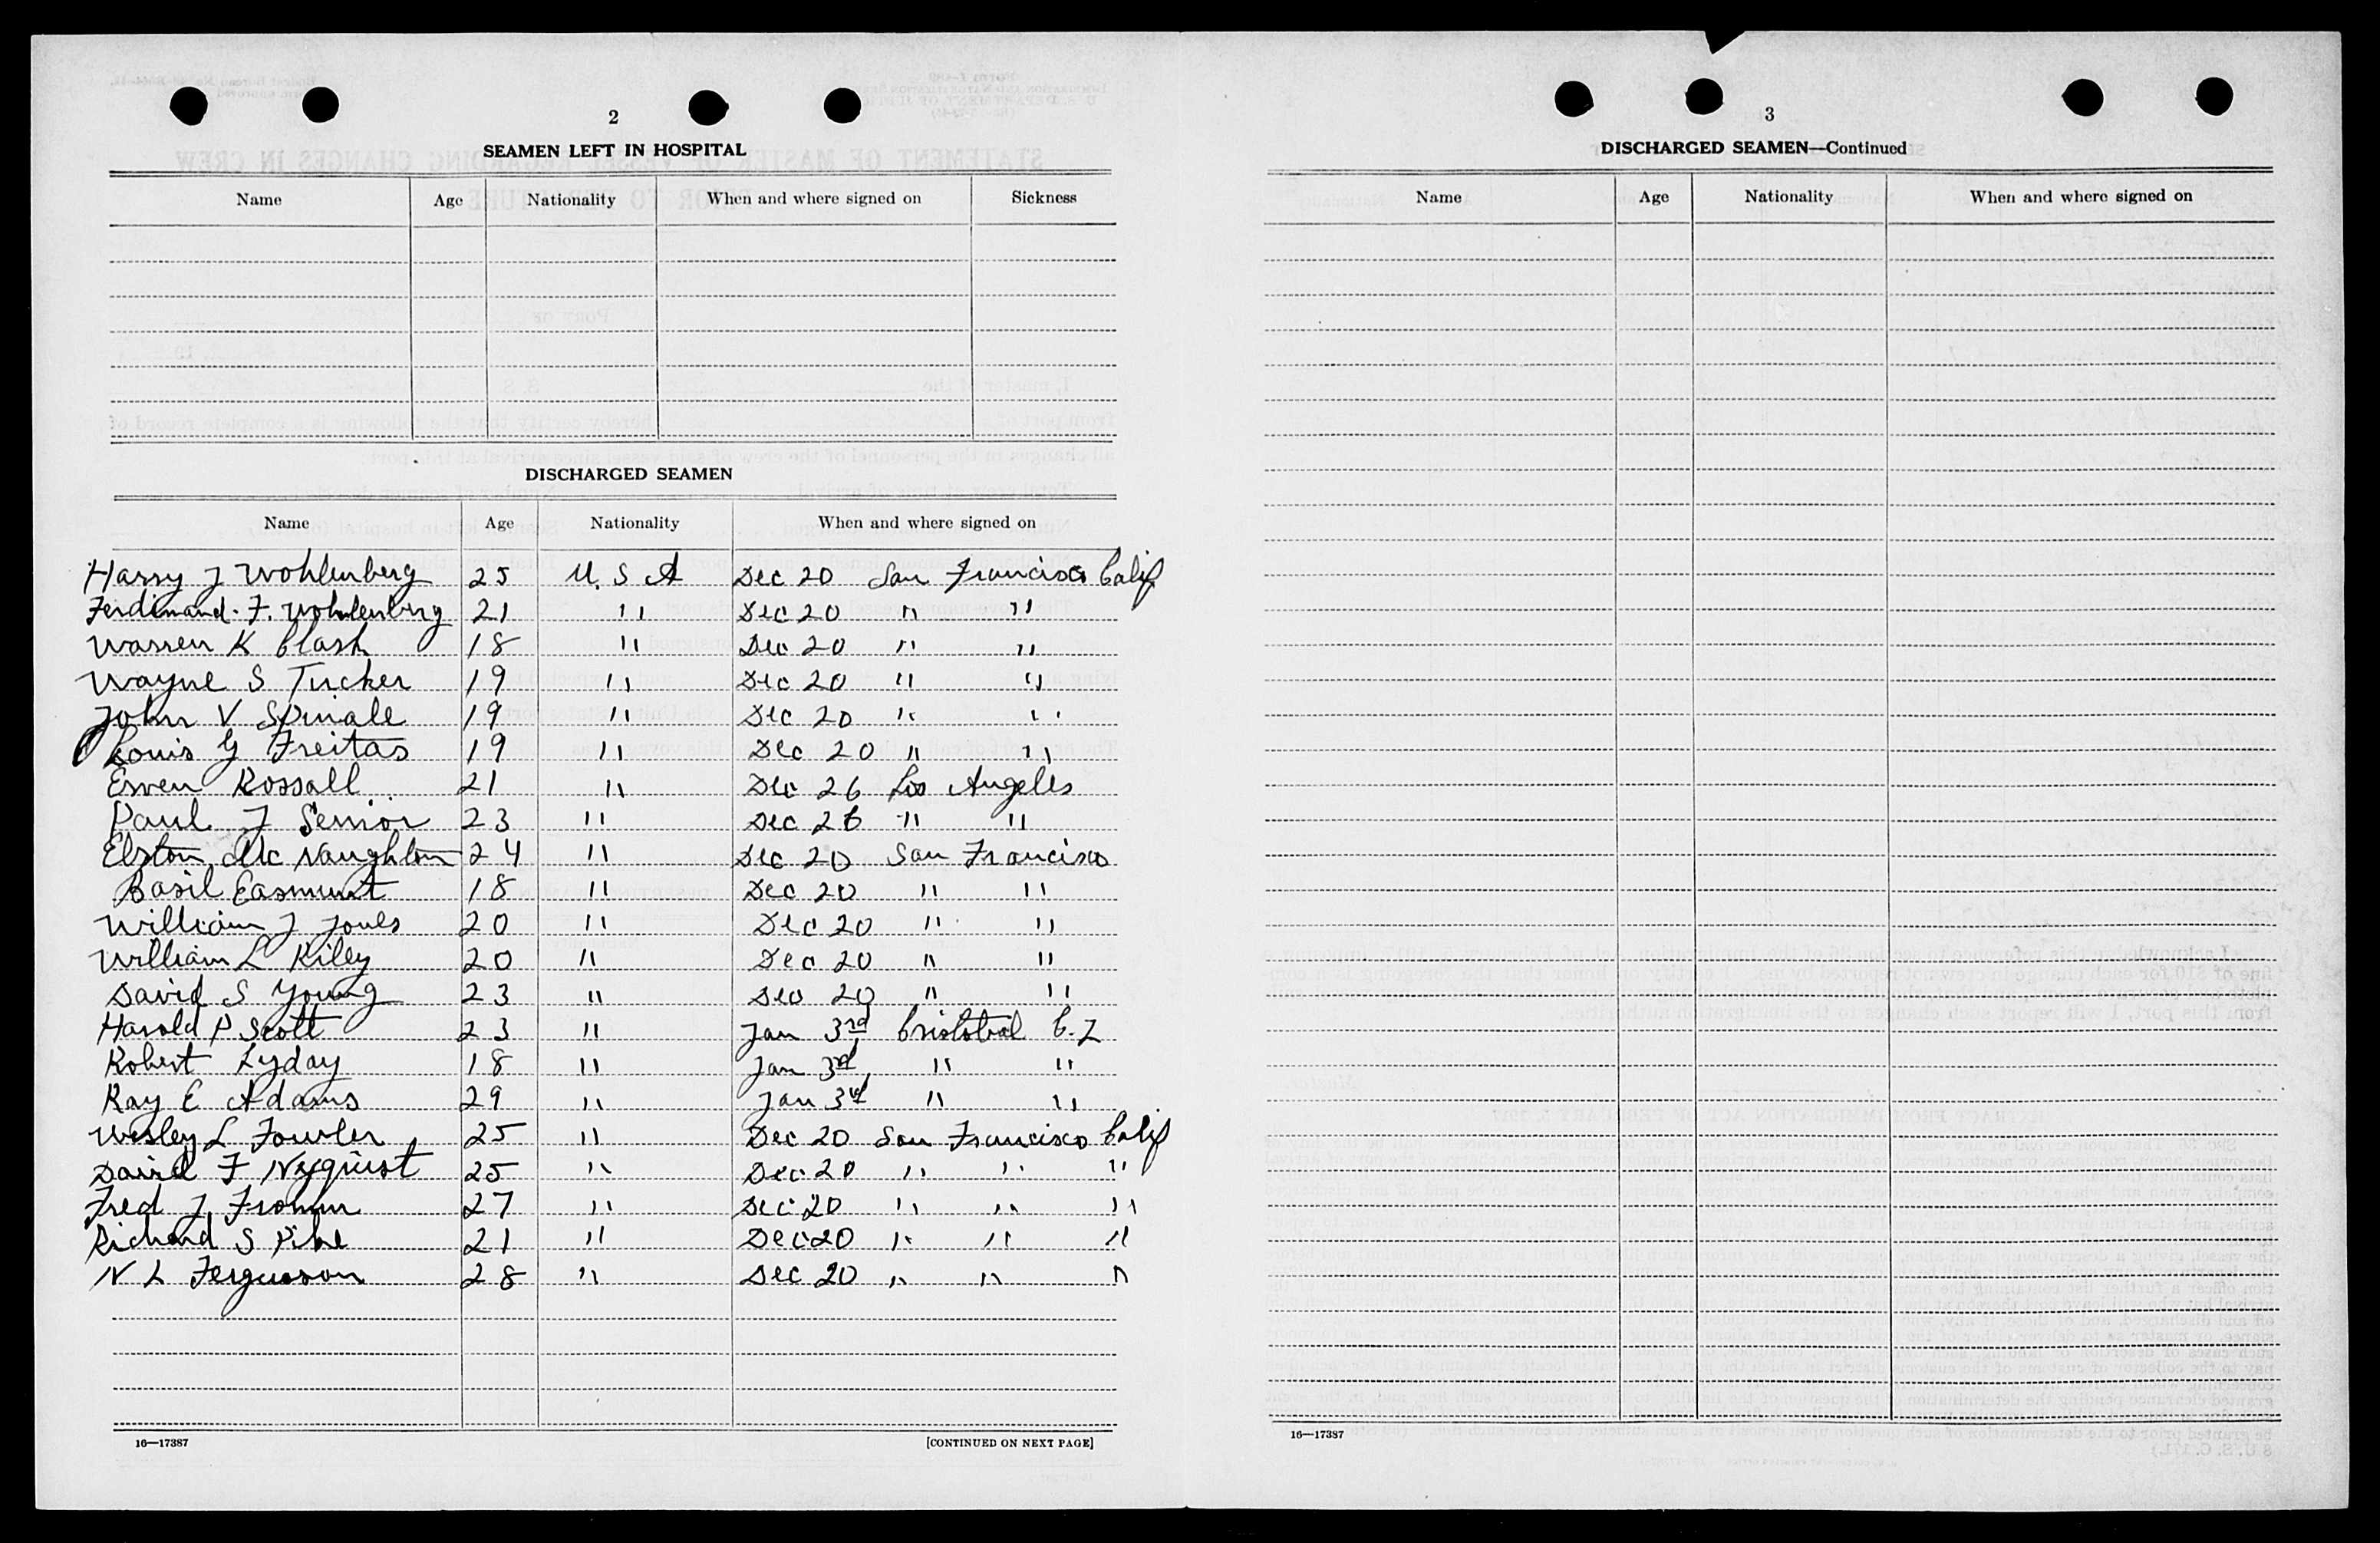 2
SEAMEN LEFT IN HOSPITAL
Name Age Nationality When and where signed on Sickness
DISCHARGED SEAMEN
Name Age Nationality When and where signed on
Harry J Wohlenberg 25 U.S A Dec 20 San Francisco Calif
Ferdinand. F. Wohlenberg 21 " Dec 20 " "
Warren K Clash 18 " Dec 20 " "
Wayne S Tucker 19 " Dec 20 " "
John V Spinale 19 " Dec 20 " "
Louis G Freitas 19 " Dec 20 " "
Erven Rossall 21 " Dec 26 Los Angeles
Paul J Senior 23 " Dec 26 " "
Elston Mc Naughton 24 " Dec 20 San Francisco
Basil Easmunt 18 " Dec 20 " "
William J Jones 20 " Dec 20 " "
William L Kiley 20 " Dec 20 " "
David S Young 23 " Dec 20 " "
Harold P Scott 23 " Jan 3rd Cristobal C.Z
Robert Lyday 18 " Jan 3rd " "
Ray E Adams 29 " Jan 3rd " "
Wesley L Fowler 25 " Dec 20 San Francisco Calif
David F Nyquist 25 " Dec 20 " " "
Fred J Fromm 27 " Dec 20 " " "
Richard S Pike 21 " Dec 20 " " "
N L Fergusson 28 " Dec 20 " " "
16—17387 [CONTINUED ON NEXT PAGE]
3
DISCHARGED SEAMEN—Continued
Name Age Nationality When and where signed on
16—17387